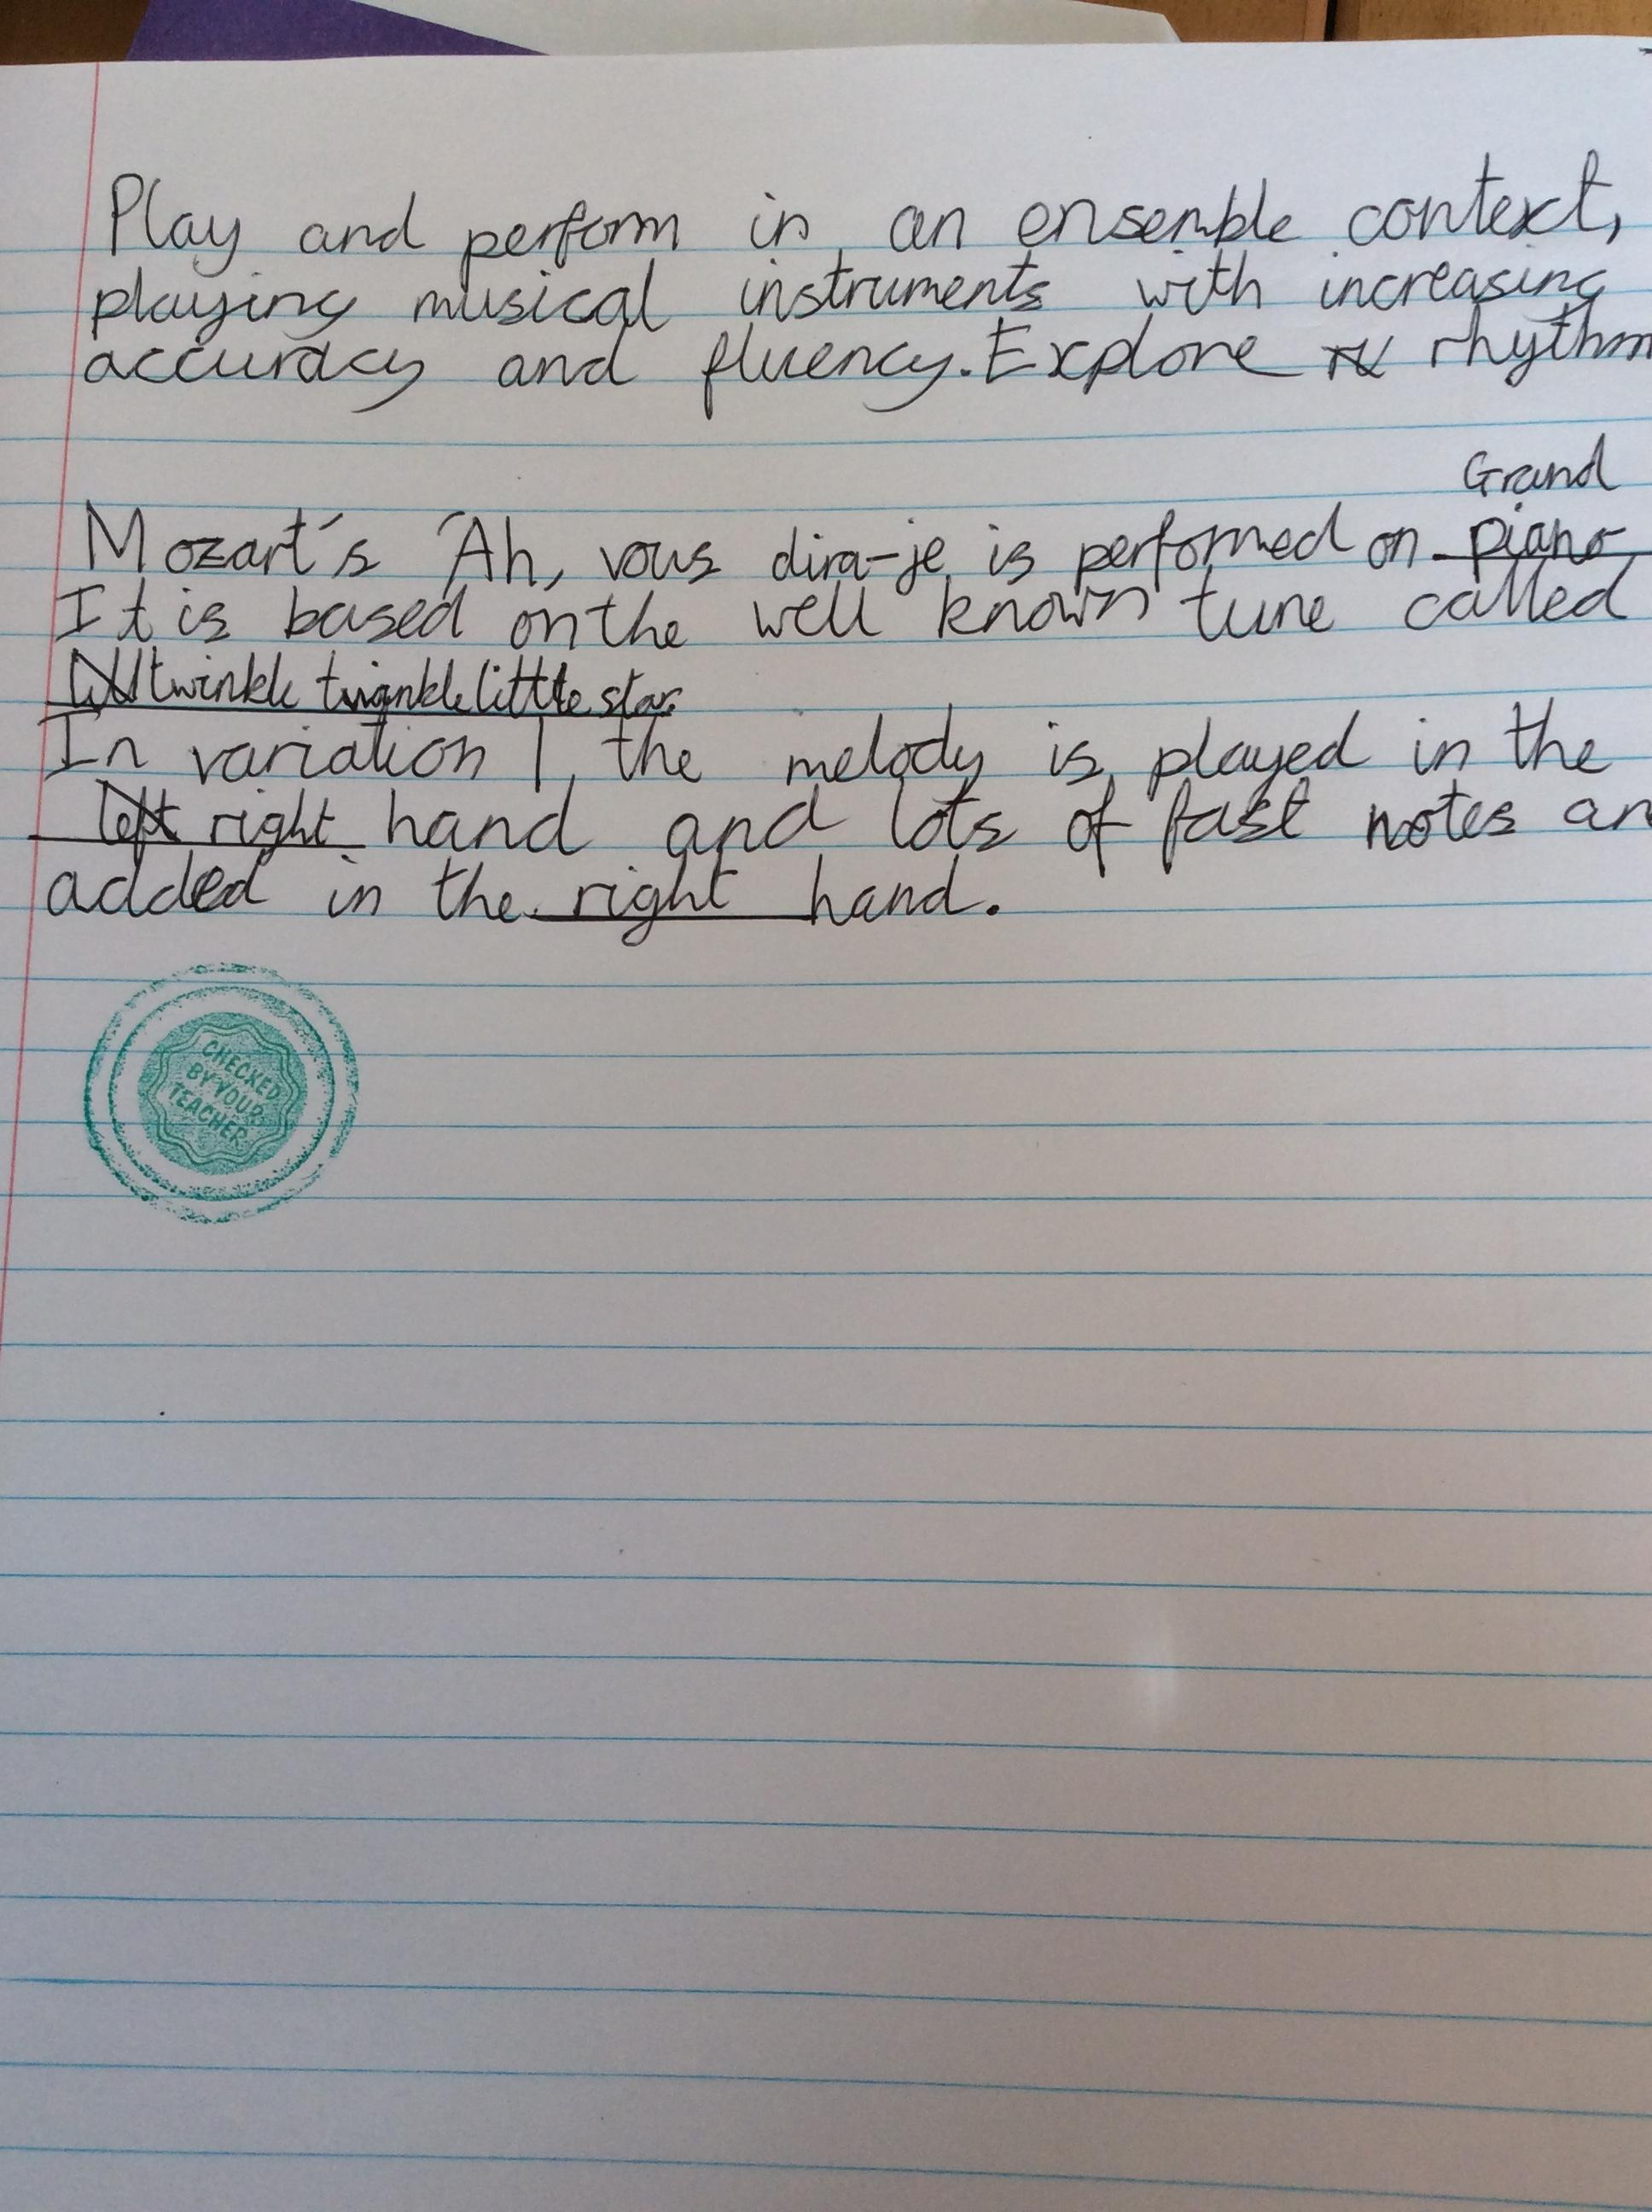 Play and perform in an ensemble context,
playing musical instruments with increasing
accuracy and fluency. Explore rhythm
Grand
Mozart's 'Ah, vous dira-je is performed on piano
It is based on the well known tune called
twinkle twinkle little star
In variation 1, the melody is played in the
left right hand and lots of fast notes ar
added in the right hand.
CHECKED
BY YOUR
TEACHER